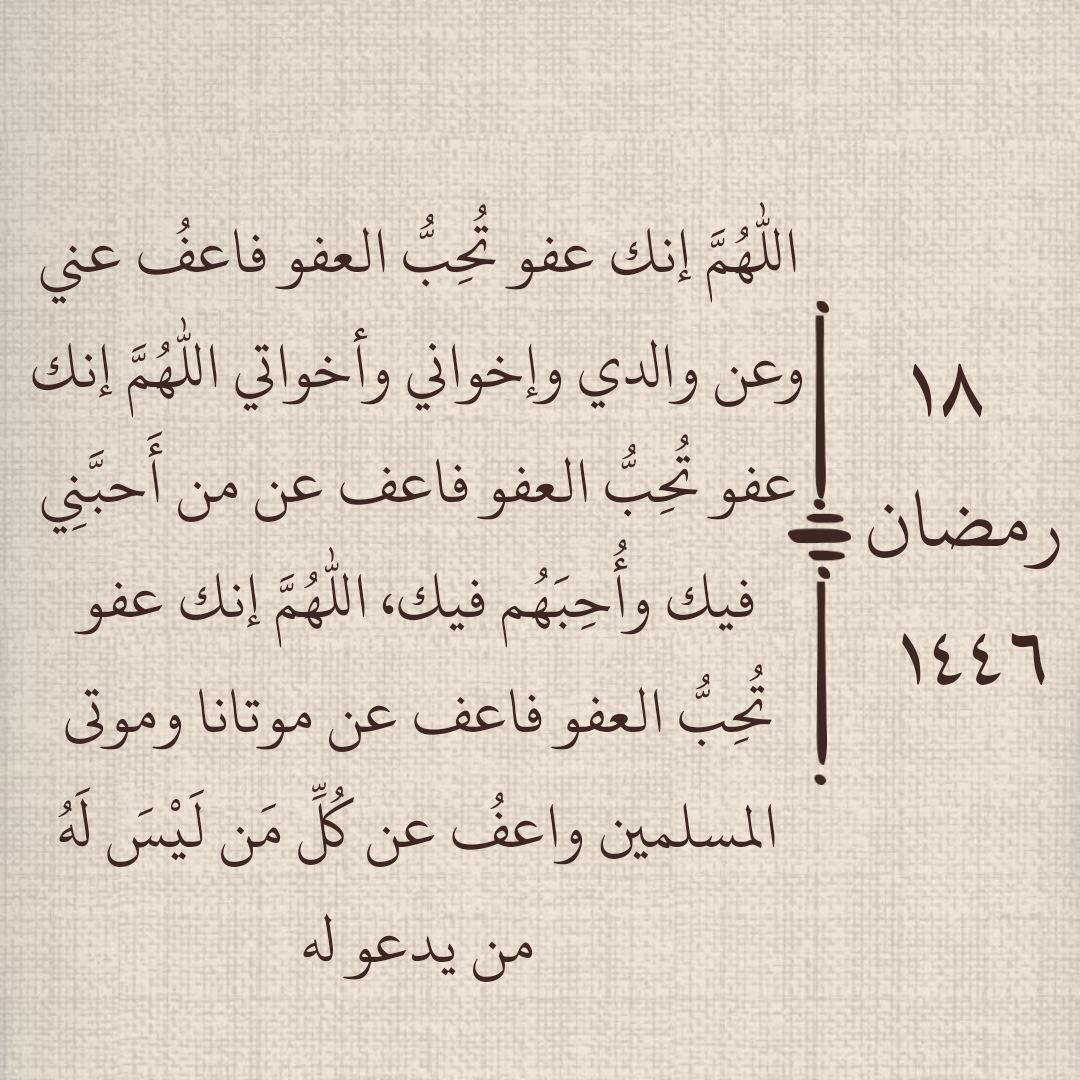 ١٨
رمضان
١٤٤٦
اللّٰهُمَّ إنك عفو تُحِبُّ العفو فاعفُ عني
وعن والدي وإخواني وأخواتي اللّٰهُمَّ إنك
عفو تُحِبُّ العفو فاعف عن من أَحبَّنِي
فيك وأُحِبَهُم فيك، اللّٰهُمَّ إنك عفو
تُحِبُّ العفو فاعف عن موتانا وموتى
المسلمين واعفُ عن كُلِّ مَن لَيْسَ لَهُ
من يدعو له